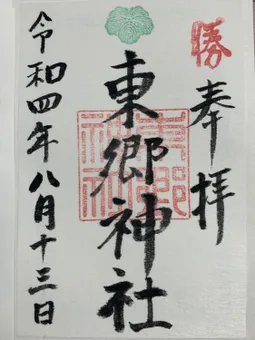 勝
奉拝
東郷神社
東郷神社
令和四年八月十三日